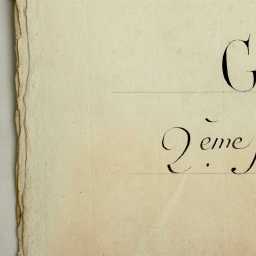 G
2ème